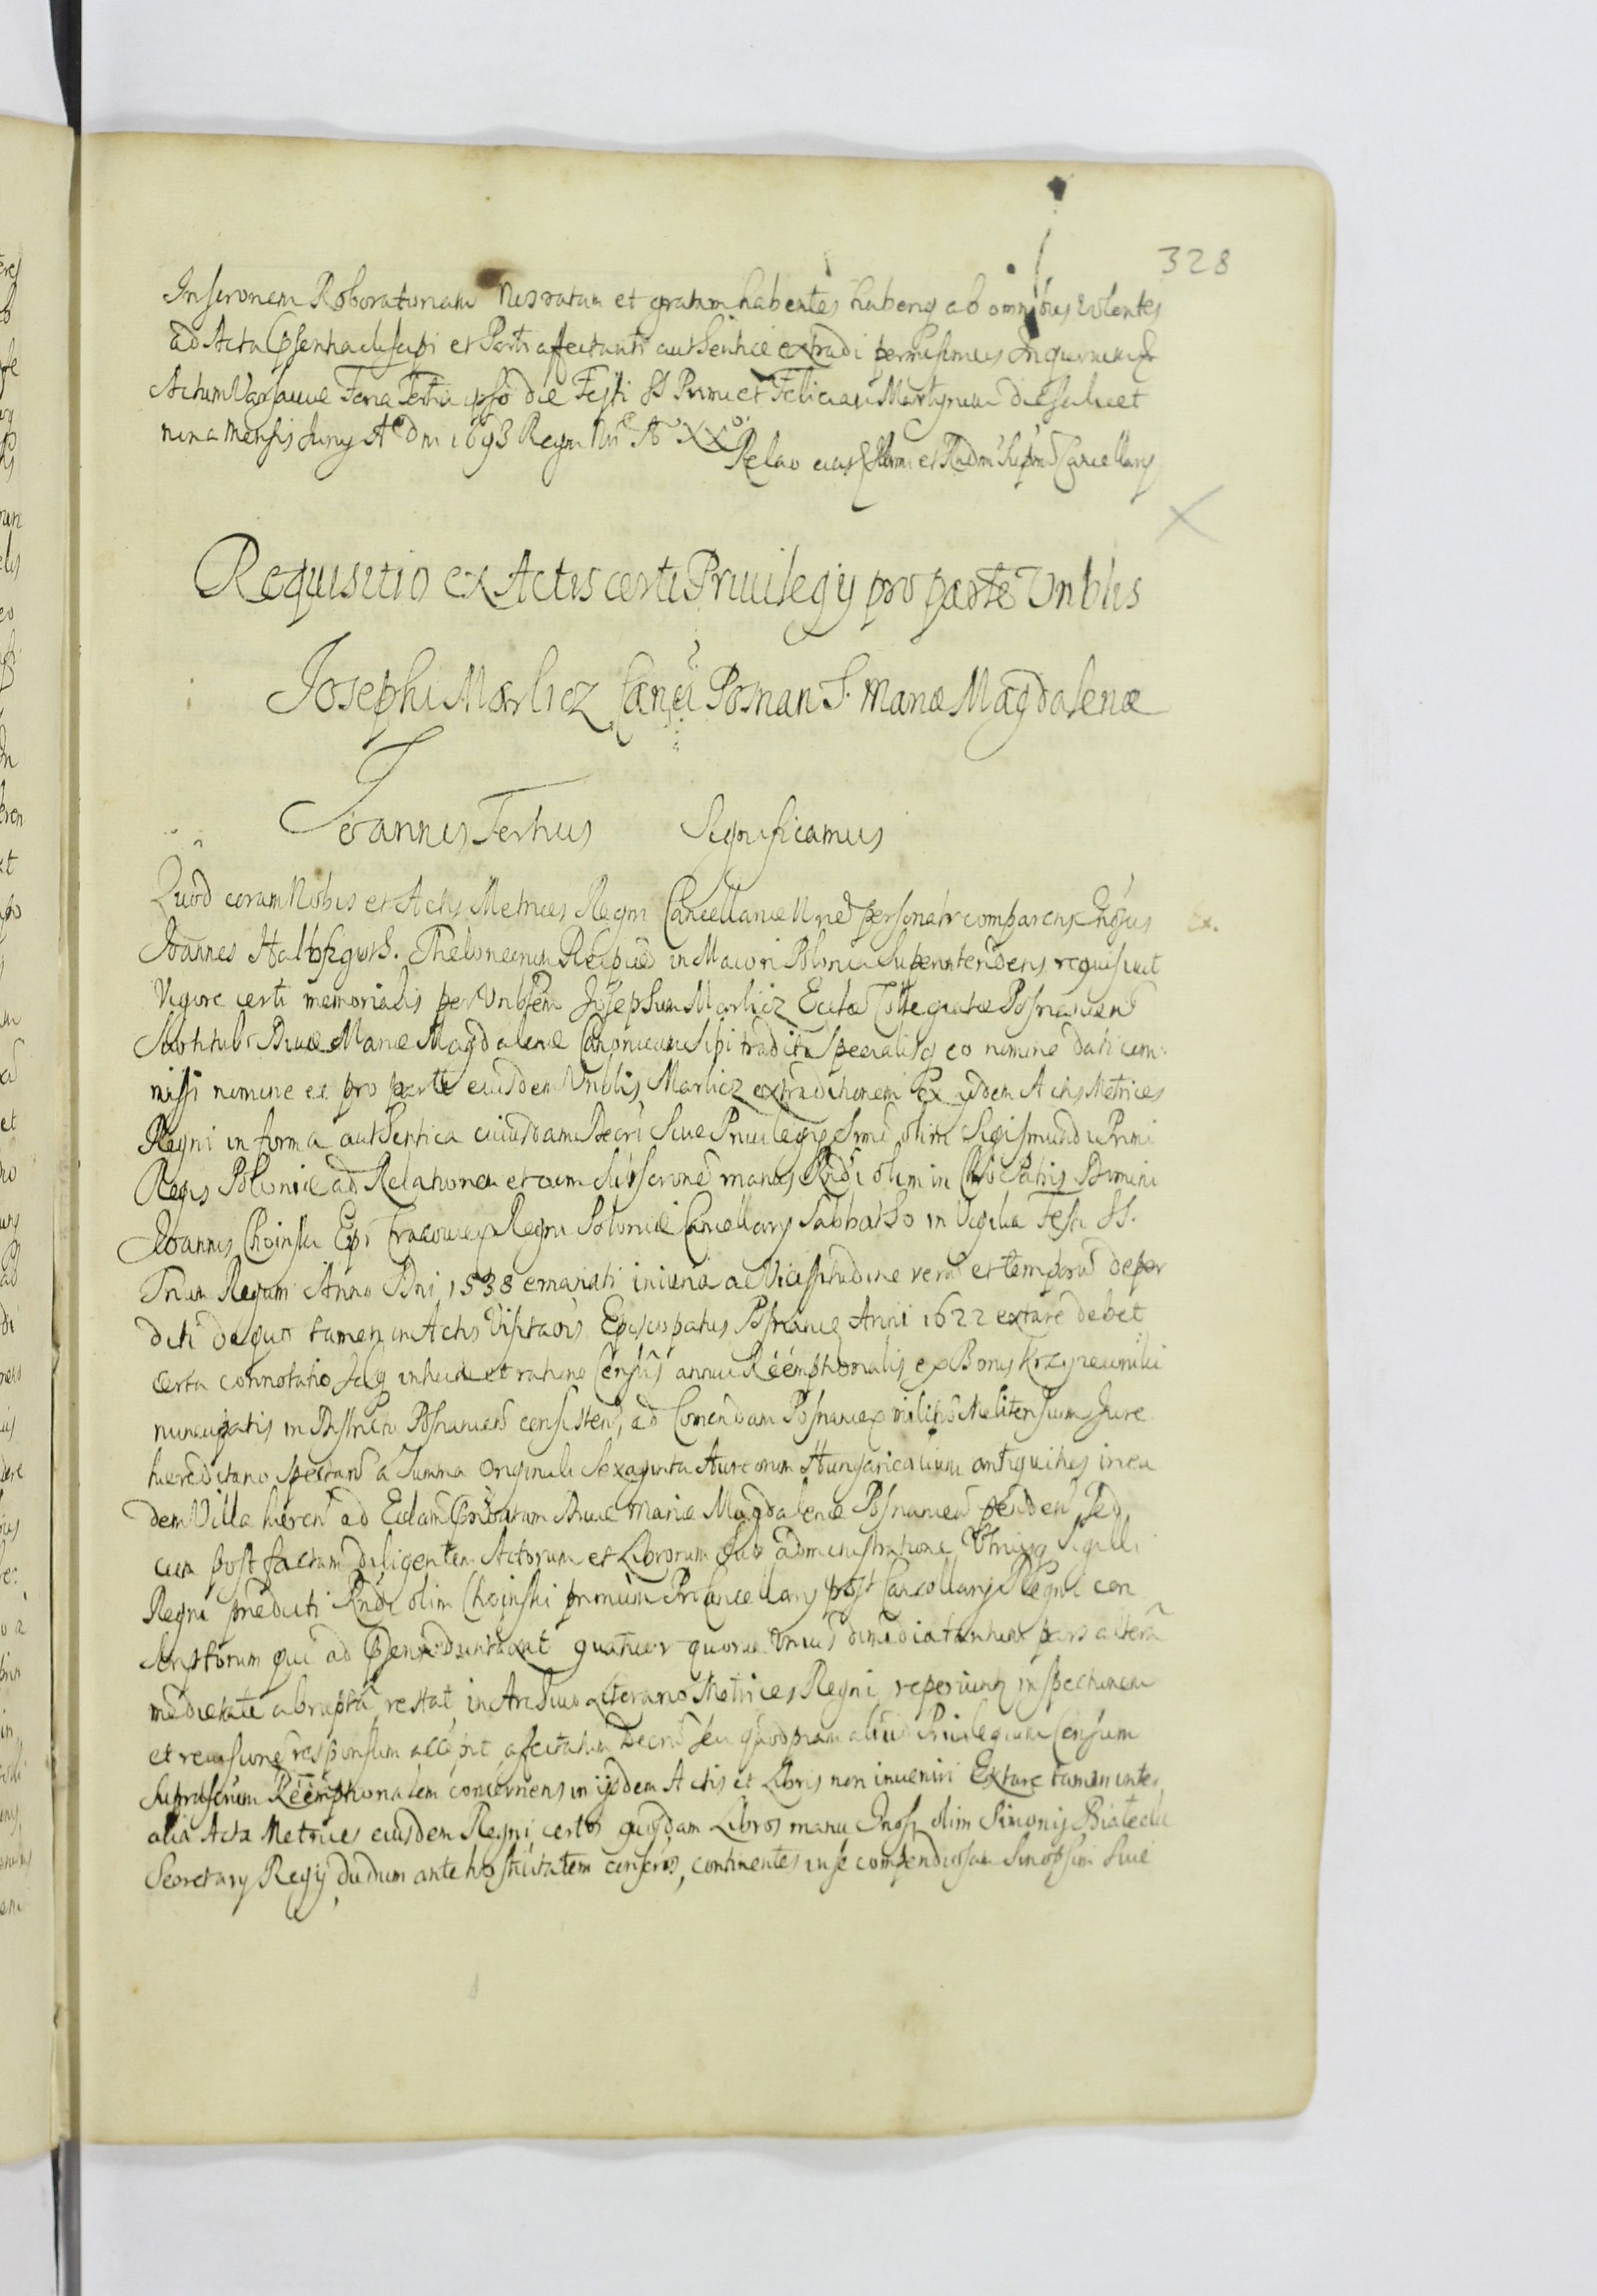 328
Inscronem Roboratoriam Nos ratam et gratam habentes haberiq ab omnibus volentes
ad Acta pñtia suscipi et Parti affectanti authentice extradi permisimus In quorum &
Actum Varsaviæ Feria Tertia ipso die Festi SS Primi et Feliciani Martyrum die scilicet
nona mensis Juny Aº Dni 1693 Regni Nri Aº XXº
Relao eius Illrmi et Rndmi Supmi Cancellary
Requisitio ex Actis certi Privilegij pro parte Vnblis
Josephi Marlicz Canci Posnan S. Mariæ Magdalenæ
Joannes Tertius Significamus
Quod coram Nobis et Actis Metrices Regni Cancellariæ Nræ personalr comparens Gñosus
Ex.
Joannes Teloneorum in Maiori Polonia Superintendens requisivit
Vigore certi memorialis per Vnblem Josephum Marlicz Ecclæ Collegiatæ Posnanien
sub titulo Divæ Mariæ Magdalenæ Canonicum sibi traditi specialisq eo nomine dati com
missi nomine et pro parte eiusdem Vnblis Marlicz extraditionem Ex ijsdem Actis Metrices
Regni in forma authentica cuiusdam Decri siue Priuilegij Srmi olim Sigismundi Primi
Regis Poloniæ ad Relationem et cum subscrione manus Rndi olim in Chro Patris Domini
Joannis Choinski Epi Cracovien Regni Poloniæ Cancellary Sabbatho in Vigilia Festi SS.
Trium Regum Anno Dni 1538 emanati iniuria ac Vicissitudine reru et temporu deper
diti de quo tamen in Actis Visitaois Episcopatus Posnaniæ Anni 1622 extare debet
certa connotatio et ratione Censûs annui Réémptionalis ex Bonis
nuncupatis in Districtu Posnanien consisten, ad Comendam Posnanien militû Melitensium Jure
hæreditario spectan à summa originali Sexaginta Aureorum Hungaricalium antiquitus in ea
dem Villa hæren ad Eccłam Divæ Mariæ Magdalenæ Posnanien Sed
cum post factam diligentem Actorum et Librorum sub administratione Vtriusq Sigilli
Regni prædicti Rndi olim Choinski primùm ProCancellary post Cancellary Regni con
scriptorum qui ad duntaxat quatuor quorum Vnius dimidia tantum pars altera
medietate abrupta restat in Archiuo Literario Metrices Regni reperiunt inspectionem
et reuisionem responsum accepit affectatum Decrm seu quodpiam aliud Priuilegium Censum
Suprascrum Réémptionalem concernens in ijsdem Actis et Libris non inueniri Extare tamen inter
alia Acta Metrices eiusdem Regni certos quosdam Libros manu Gnosi olim Simonis
Secretary Regij dudum ante hostilitatem conscros, continentes in se compendiosam Sinopsim siue